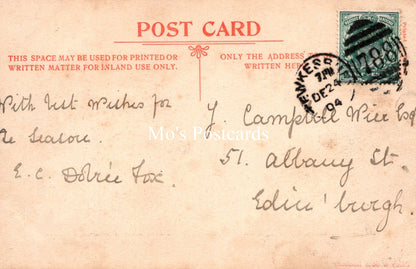 POST CARD
THIS SPACE MAY BE USED FOR PRINTED OR
WRITTEN MATTER FOR INLAND USE ONLY.
ONLY THE ADDRESS TO
WRITTEN HE
TEWKESB
7 PM
DE 24
04
788
With best Wishes for
the Season.
E. C. Dobrée Fox.
J. Campbell Wier Esq
51. Albany St.
Edin'burgh.
Mo's Postcards